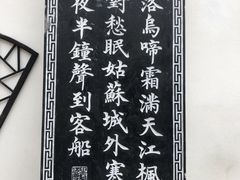 落烏啼霜滿天江楓
對愁眠姑蘇城外寒
夜半鐘聲到客船